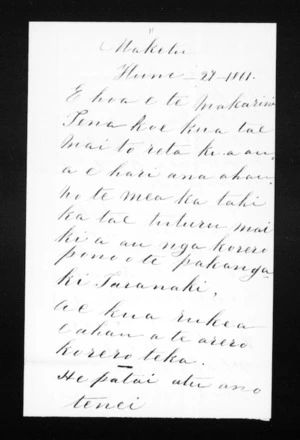 Maketu
Hune - 29 - 1861.
E hoa e te Makarini
Tena koe kua tae
mai to reta ki a au
a e hari ana ahau
no te mea ka tahi
ka tae tuturu mai
ki a au nga korero
pono o te pakanga
ki Taranaki,
Ae kua rukea
e ahau a te arero
korero teka.
He patai atu ano
tenei